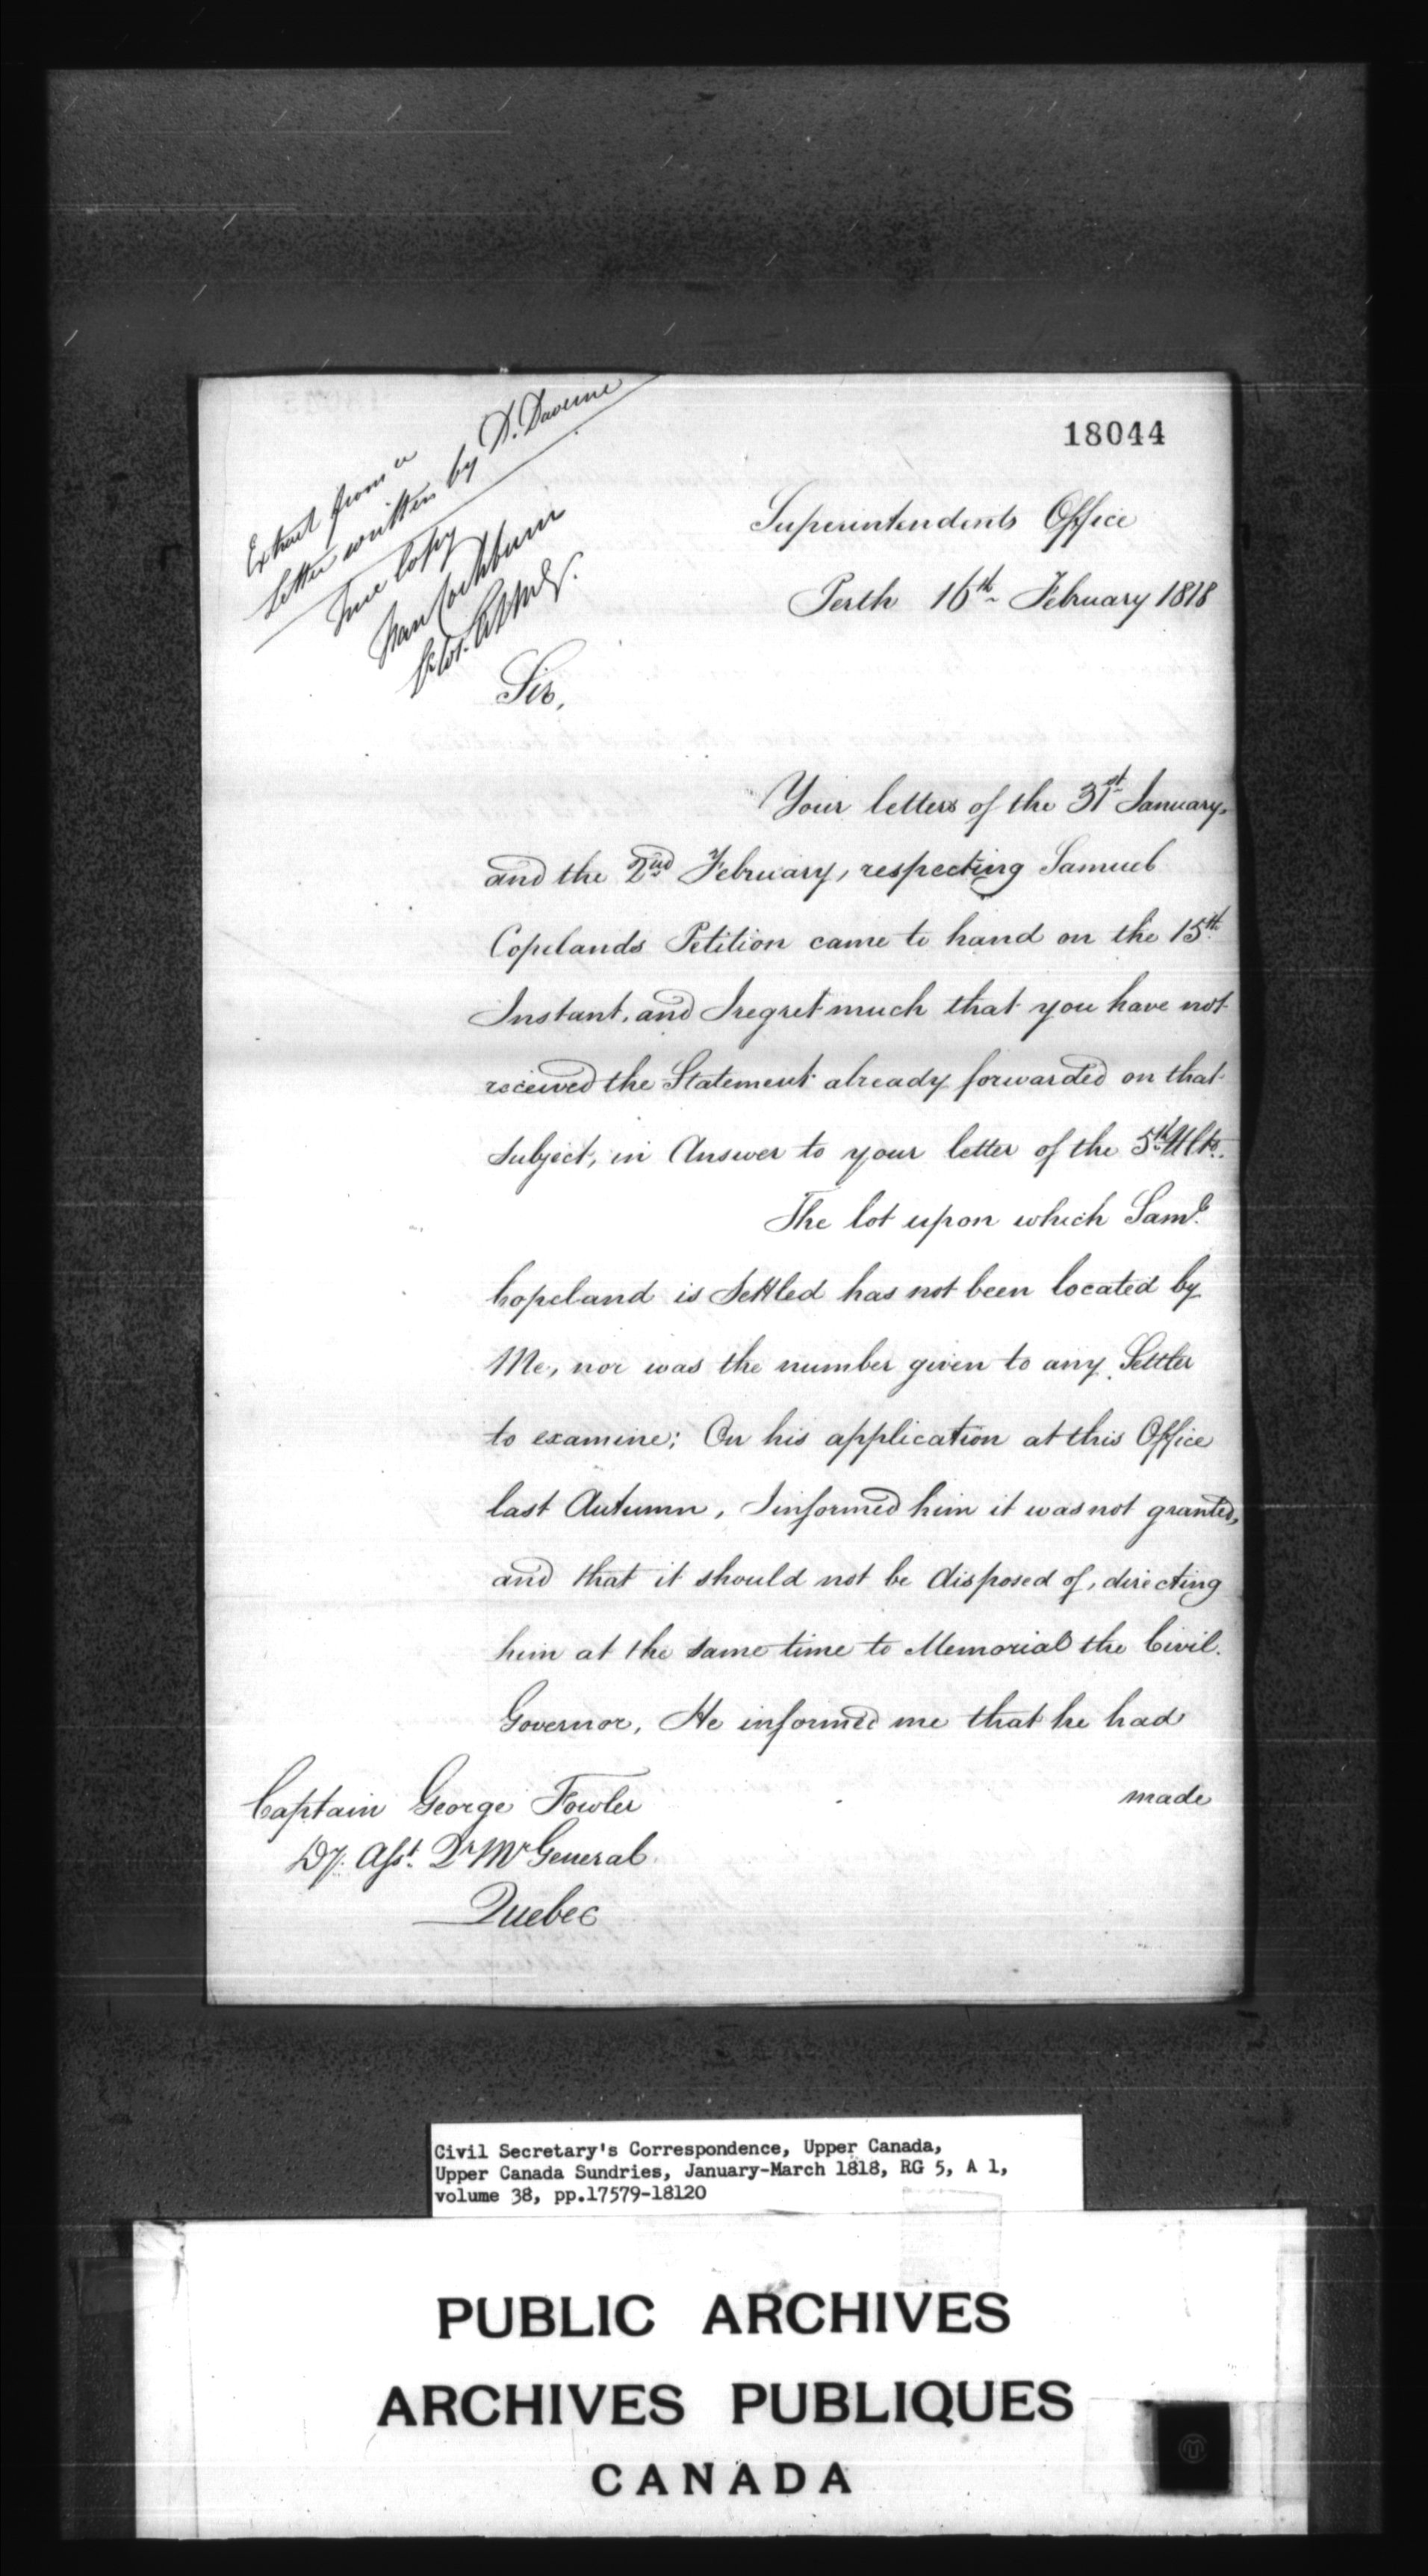 18044
Extract from a
Letter written by D. Daverne
True Copy
Fran Cockburn
Superintendents Office
Perth 16th February 1818
Sir,
Your letters of the 31st January,
and the 2nd February, respecting Samuel
Copelands Petition came to hand on the 15th
Instant, and I regret much that you have not
received the Statement already forwarded on that
subject, in Answer to your letter of the 5th Ulto.
The lot upon which Saml.
Copeland is Settled has not been located by
Me, nor was the number given to any Settler
to examine; On his application at this Office
last Autumn, I informed him it was not granted,
and that it should not be disposed of, directing
him at the same time to Memorial the Civil
Governor, He informed me that he had
made
Captain George Fowler
Dy. Asst. Qr Mr General
Quebec
Civil Secretary's Correspondence, Upper Canada,
Upper Canada Sundries, January-March 1818, RG 5, A 1,
volume 38, pp.17579-18120
PUBLIC ARCHIVES
ARCHIVES PUBLIQUES
CANADA